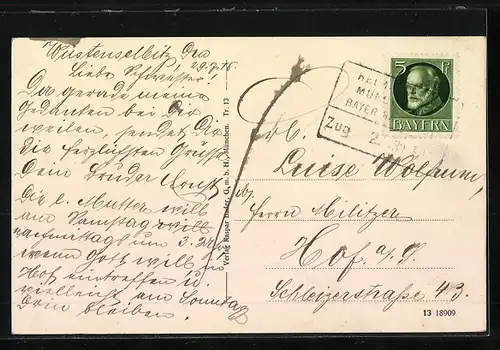 Wüstenselbitz, den
29.7.15
Liebe Schwester!
Da gerade meine
Gedanken bei Dir
weilen, sendet Dir
die herzlichsten Grüsse
Dein Bruder Ernst.
Die l. Mutter will
am Samstag
nachmittags um 3.
wenn Gott will in
Hof eintreffen u.
vielleicht am Sonntag
drin bleiben.
Verlag Kaspar Bader, G. m. b. H., München. Tr. 13
5 Pf
BAYERN
MÜN
BAYER.
Zug 2
Luise Wolfrum,
Herrn Militzer
Hof a/S.
Schleizerstraße 43.
13 18909